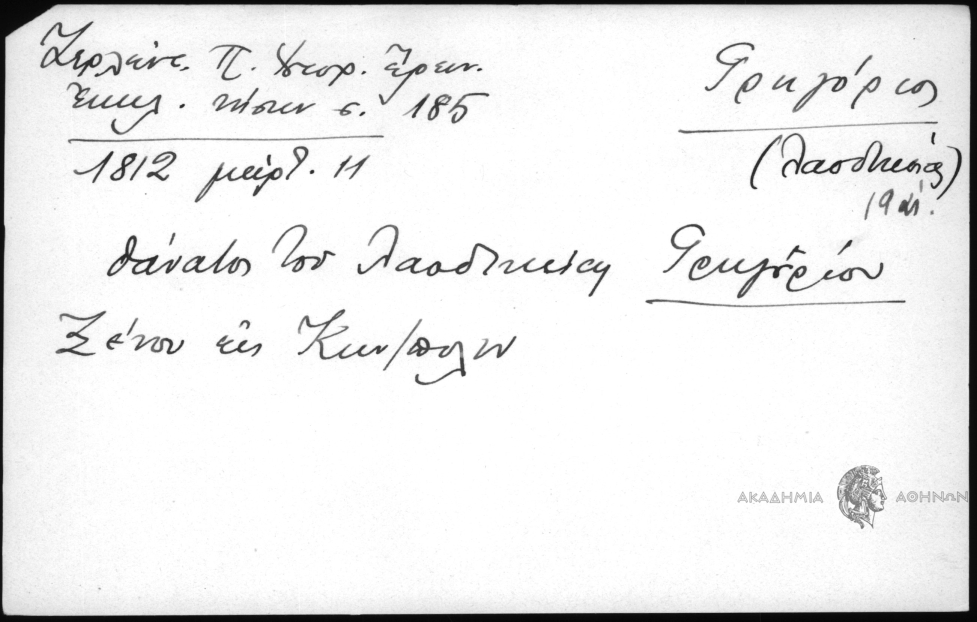 Ζερλέντ. Π. Ἱστορ. Ἔρευν.
Ἐκκλ. νήσων σ. 185
1812 μάρτ. 11
Γρηγόριος
(Λαοδικείας)
19 αἰ.
θάνατος τοῦ Λαοδικείας Γρηγορίου
Ξένου εἰς Κων/πολιν
ΑΚΑΔΗΜΙΑ ΑΘΗΝΩΝ